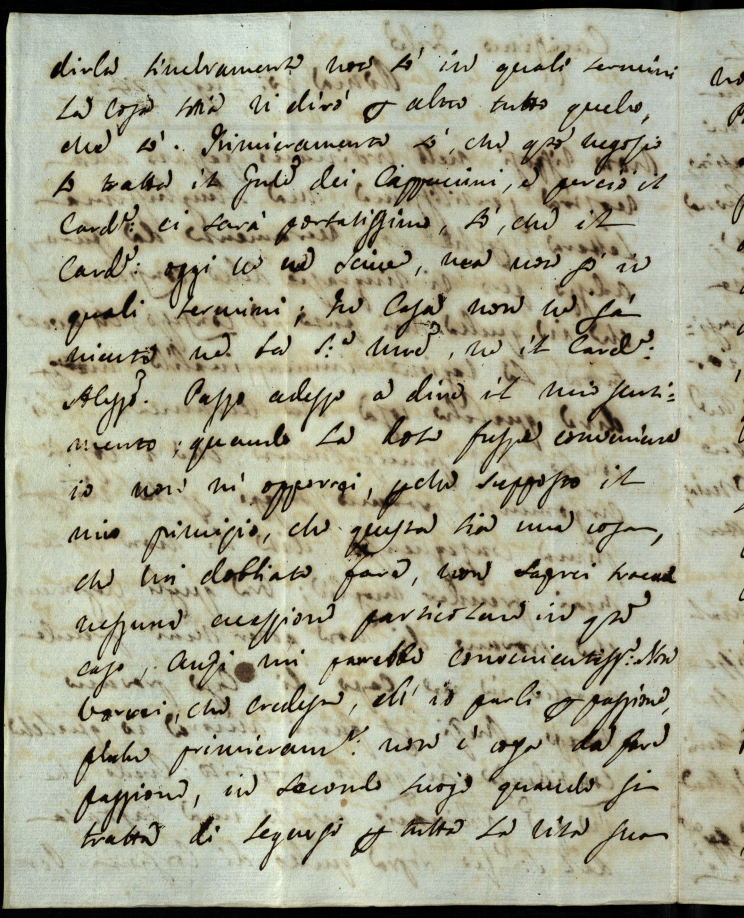 dirla sinceramente non sò in quali termini
la cosa stia vi dirò p altro tutto quello,
che sò. Primieramente sò, che qsto negozio
lo tratta il Gnle dei Cappuccini, e perciò il
Card.le ci sarà portatissimo, sò, che il
Card.le: oggi ve ne scrive, ma non sò in
quali termini; In Casa non ne sà
niente nè la S.ra Mre, nè il Card.le:
Alessò. Passo adesso a dirvi il mio senti=
mento; quando la dote fosse conveniente
io non mi opporrei, pche supposto il
mio principio, che questa sia una cosa,
che voi dobbiate fare, non saprei trovare
nessuna eccezzione particolare in qsto
caso, anzi mi parebbe convenientiss.o: Non
vorrei, che credeste, ch' io parli p passione,
pche primieram.te: non è cosa da farè
passione, in secondo luogo quando si
tratta di legarsi p tutta la vita sua